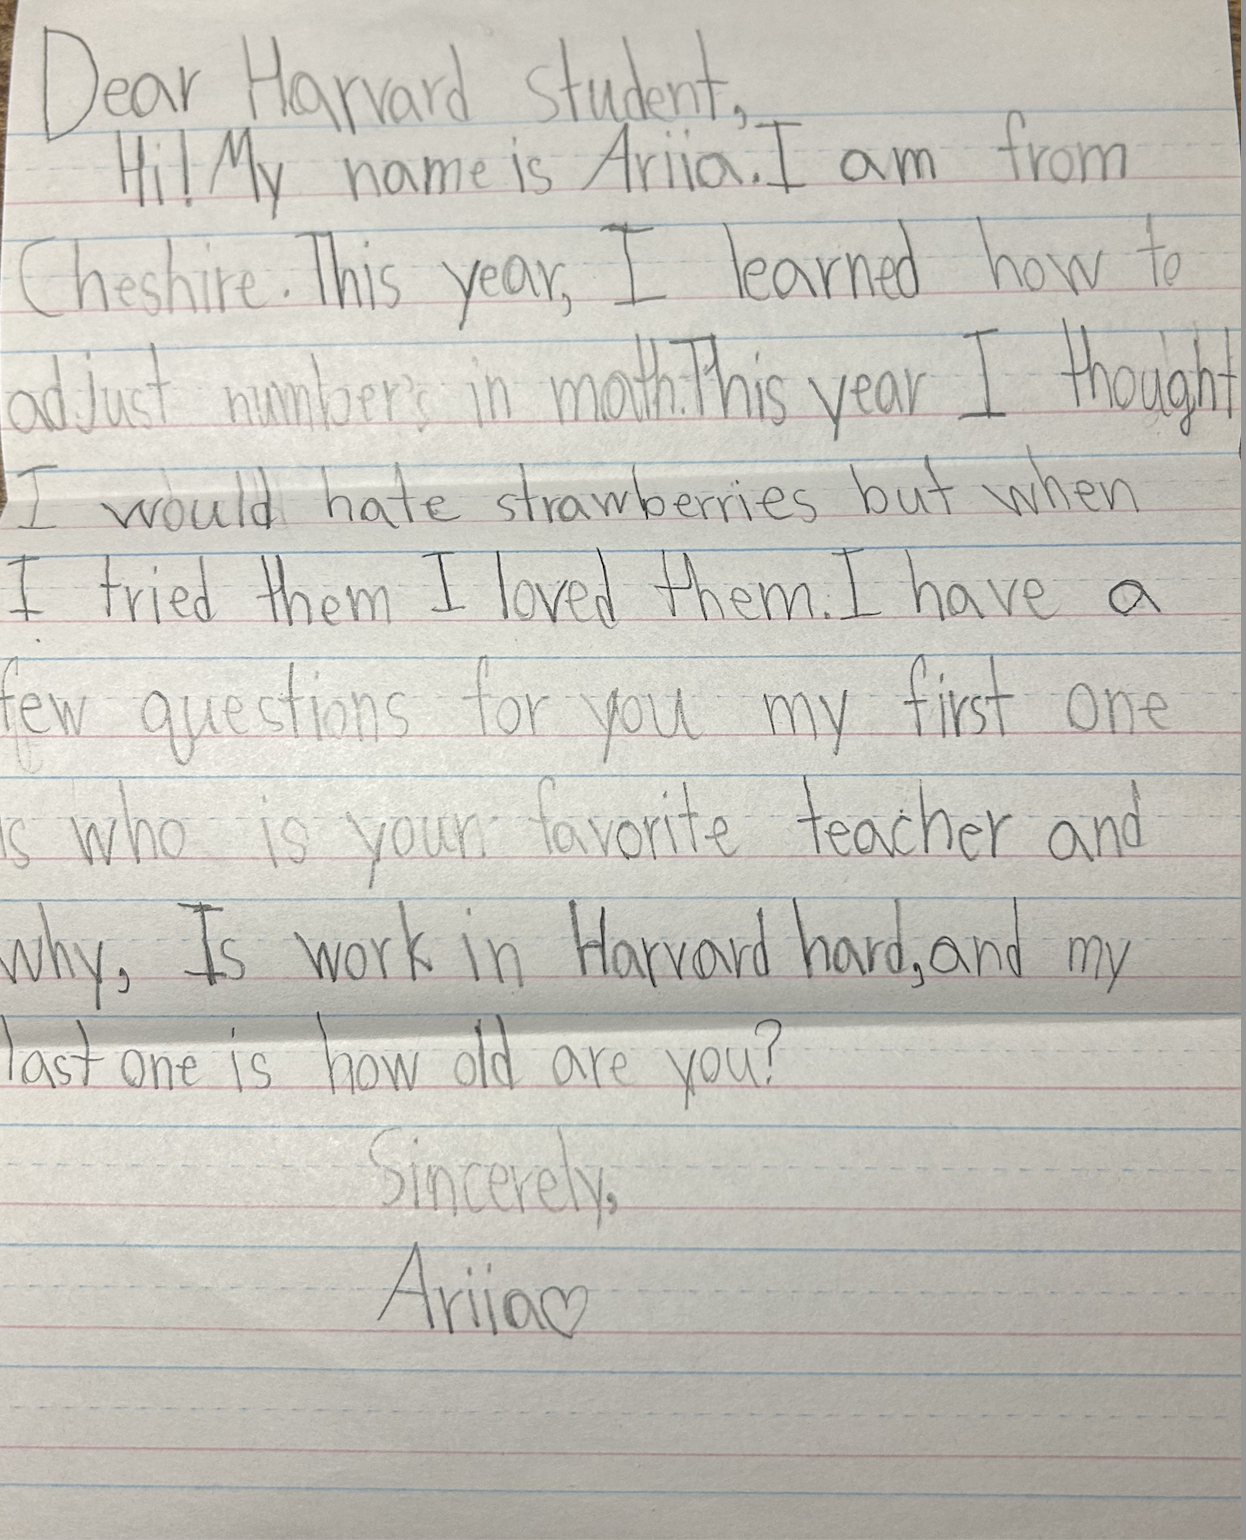 Dear Harvard student,
Hi! My name is Ariia. I am from
Cheshire. This year, I learned how to
adjust numbers in math. This year I thought
I would hate strawberries but when
I tried them I loved them. I have a
few questions for you my first one
is who is your favorite teacher and
why, Is work in Harvard hard, and my
last one is how old are you?
Sincerely,
Ariia♡